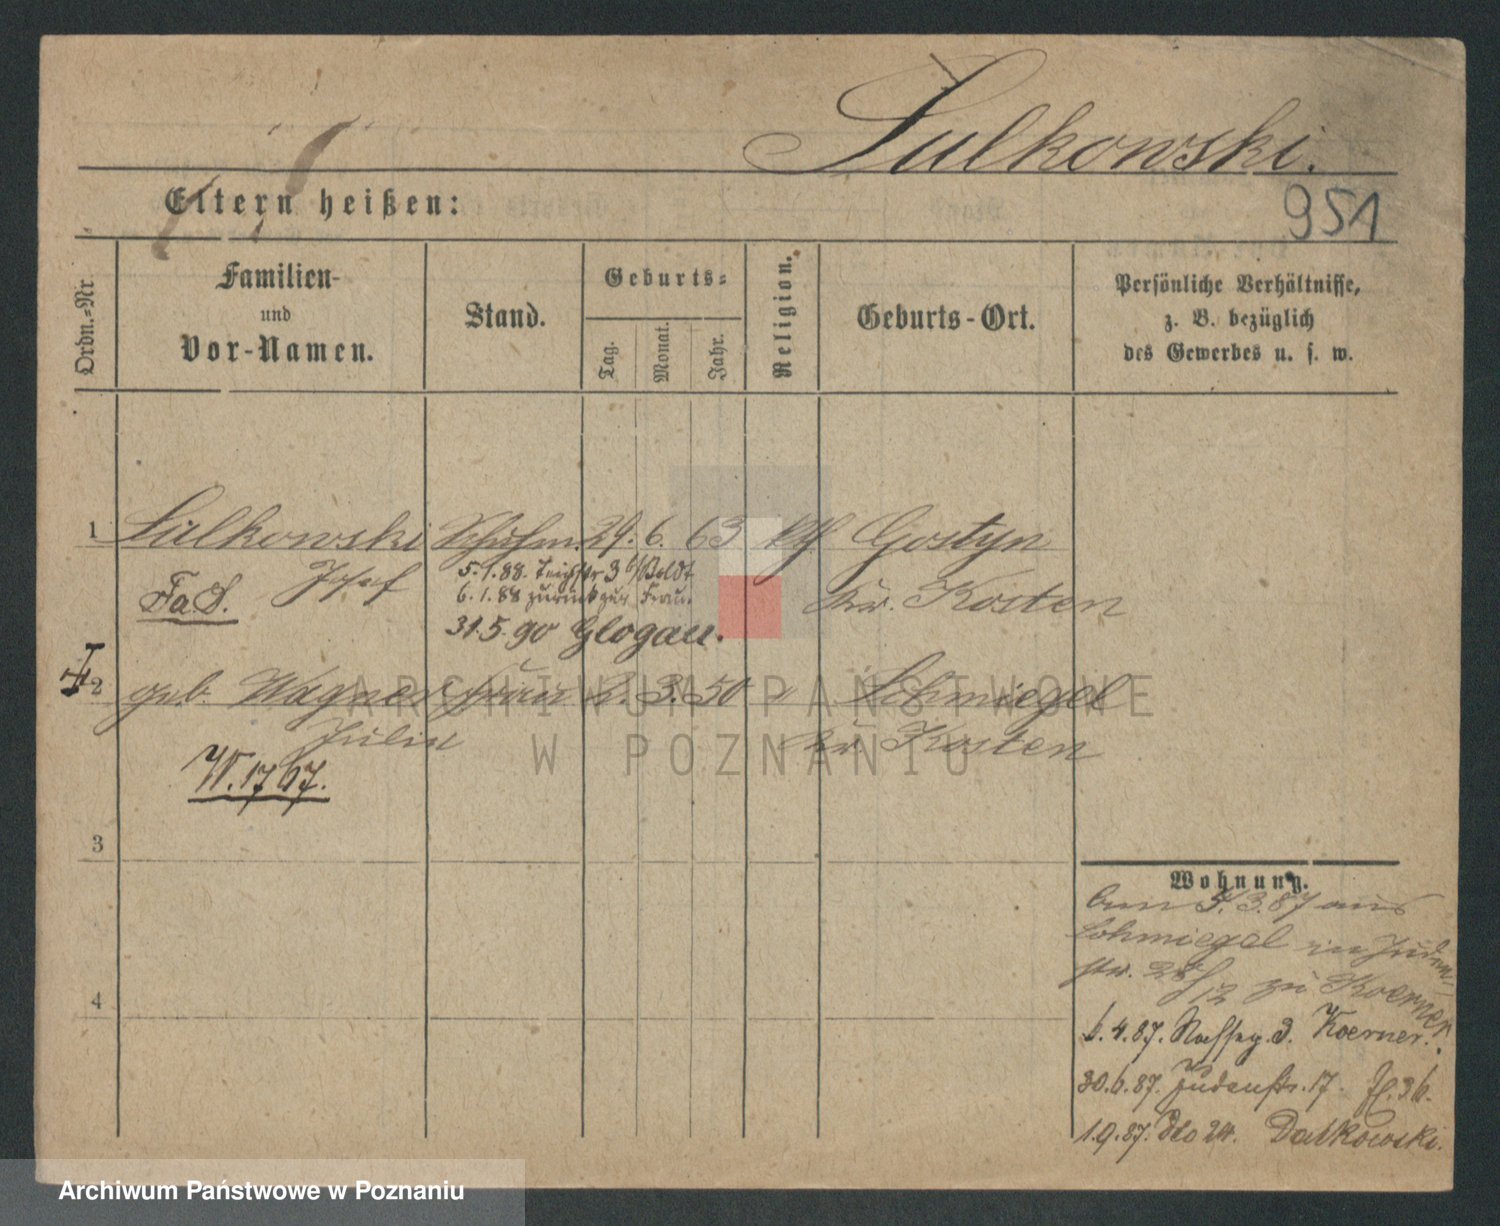 Sulkowski.
951
Eltern heißen:
Ordn.=Nr.
Familien-
und
Vor-Namen.
Stand.
Geburts=
Tag.
Monat.
Jahr.
Religion.
Geburts-Ort.
Persönliche Verhältnisse,
z. B. bezüglich
des Gewerbes u. s. w.
1 Sulkowski Schuhm. 29. 6. 63 kth Gostyn
Josef
5.1.88. Teichstr 3 b/Boldt
6.1.88 zurück zur Frau.
Kr. Kosten
31.5.90 Glogau.
2 geb. Wagner Frau 2. 3. 50 " Schmiegel
Julia
Kr. Kosten
W. 1767.
3
4
Wohnung.
3.87 aus
Schmiegel in Juden-
str. zu Koerner
6.4.87. 3. Koerner.
30.6.87. Judenstr. 17.
1.9.87. dto 24. Dalkowski.
ARCHIWUM PAŃSTWOWE
W POZNANIU
Archiwum Państwowe w Poznaniu